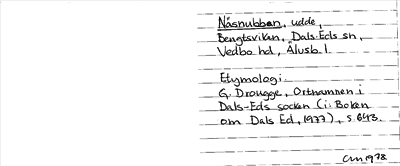 Näsnubban, udde,
Bengtsvikan, Dals-Eds sn,
Vedbo hd, Älvsb. l.
Etymologi
G. Drougge, Ortnamnen i
Dals-Eds socken (i: Boken
om Dals Ed, 1977), s. 643.
1978